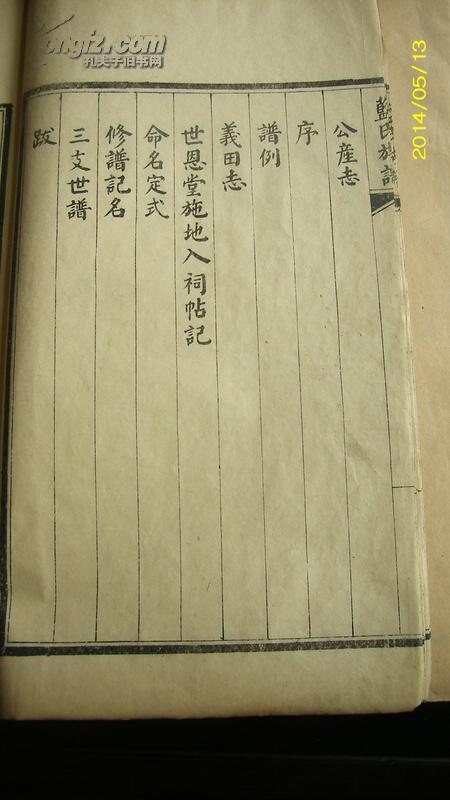 藍氏族譜
公産志
序
譜例
義田志
世恩堂施地入祠帖記
命名定式
修譜記名
三支世譜
跋
2014/05/13
孔夫子旧书网